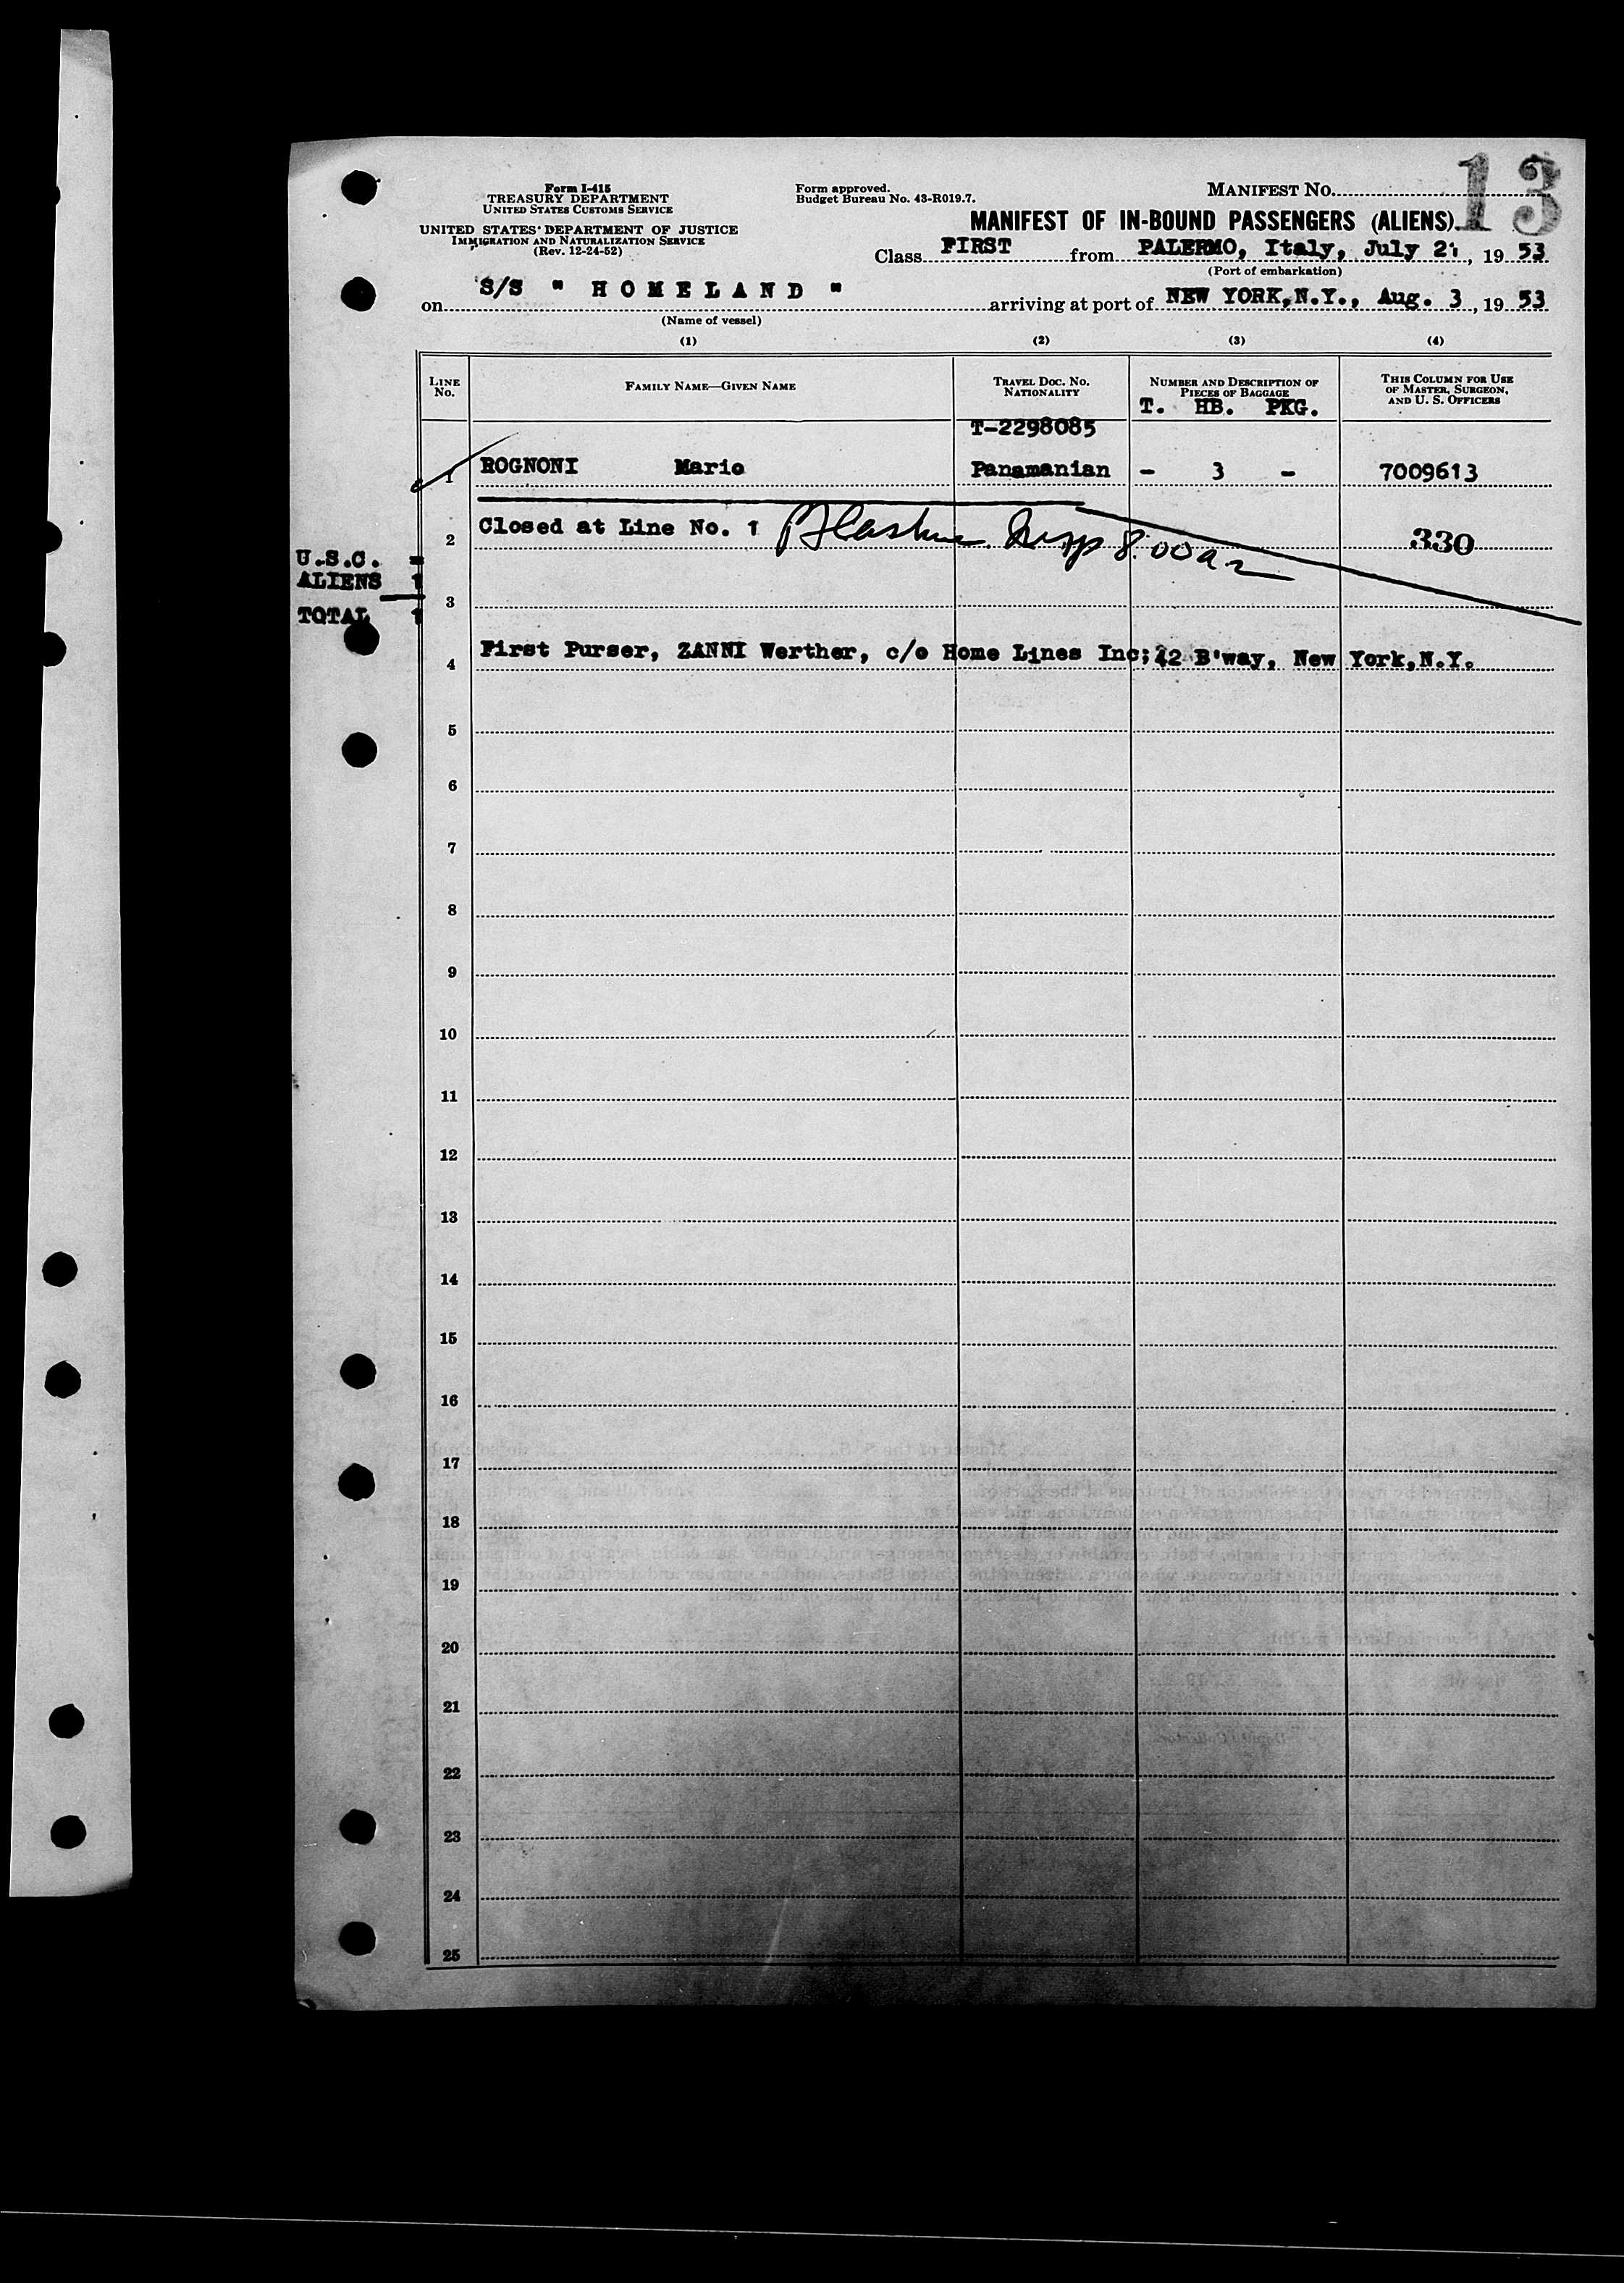 13
Form I-415
TREASURY DEPARTMENT
UNITED STATES CUSTOMS SERVICE
UNITED STATES DEPARTMENT OF JUSTICE
IMMIGRATION AND NATURALIZATION SERVICE
(Rev. 12-24-52)
Form approved.
Budget Bureau No. 43-R019.7.
MANIFEST NO.
MANIFEST OF IN-BOUND PASSENGERS (ALIENS)
Class FIRST from PALERMO, Italy, July 21, 19 53
(Port of embarkation)
on S/S " H O M E L A N D " arriving at port of NEW YORK,N.Y., Aug. 3, 19 53
(Name of vessel)
(1) (2) (3) (4)
LINE NO.
FAMILY NAME—GIVEN NAME
TRAVEL DOC. NO.
NATIONALITY
NUMBER AND DESCRIPTION OF
PIECES OF BAGGAGE
T. HB. PKG.
THIS COLUMN FOR USE
OF MASTER, SURGEON,
AND U. S. OFFICERS
T-2298085
1 ROGNONI Mario Panamanian - 3 - 7009613
2 Closed at Line No. 1 Insp 8.00a 330
U.S.C. =
ALIENS 1
TOTAL 1
3
4 First Purser, ZANNI Werther, c/o Home Lines Inc; 42 B'way, New York,N.Y.
5
6
7
8
9
10
11
12
13
14
15
16
17
18
19
20
21
22
23
24
25